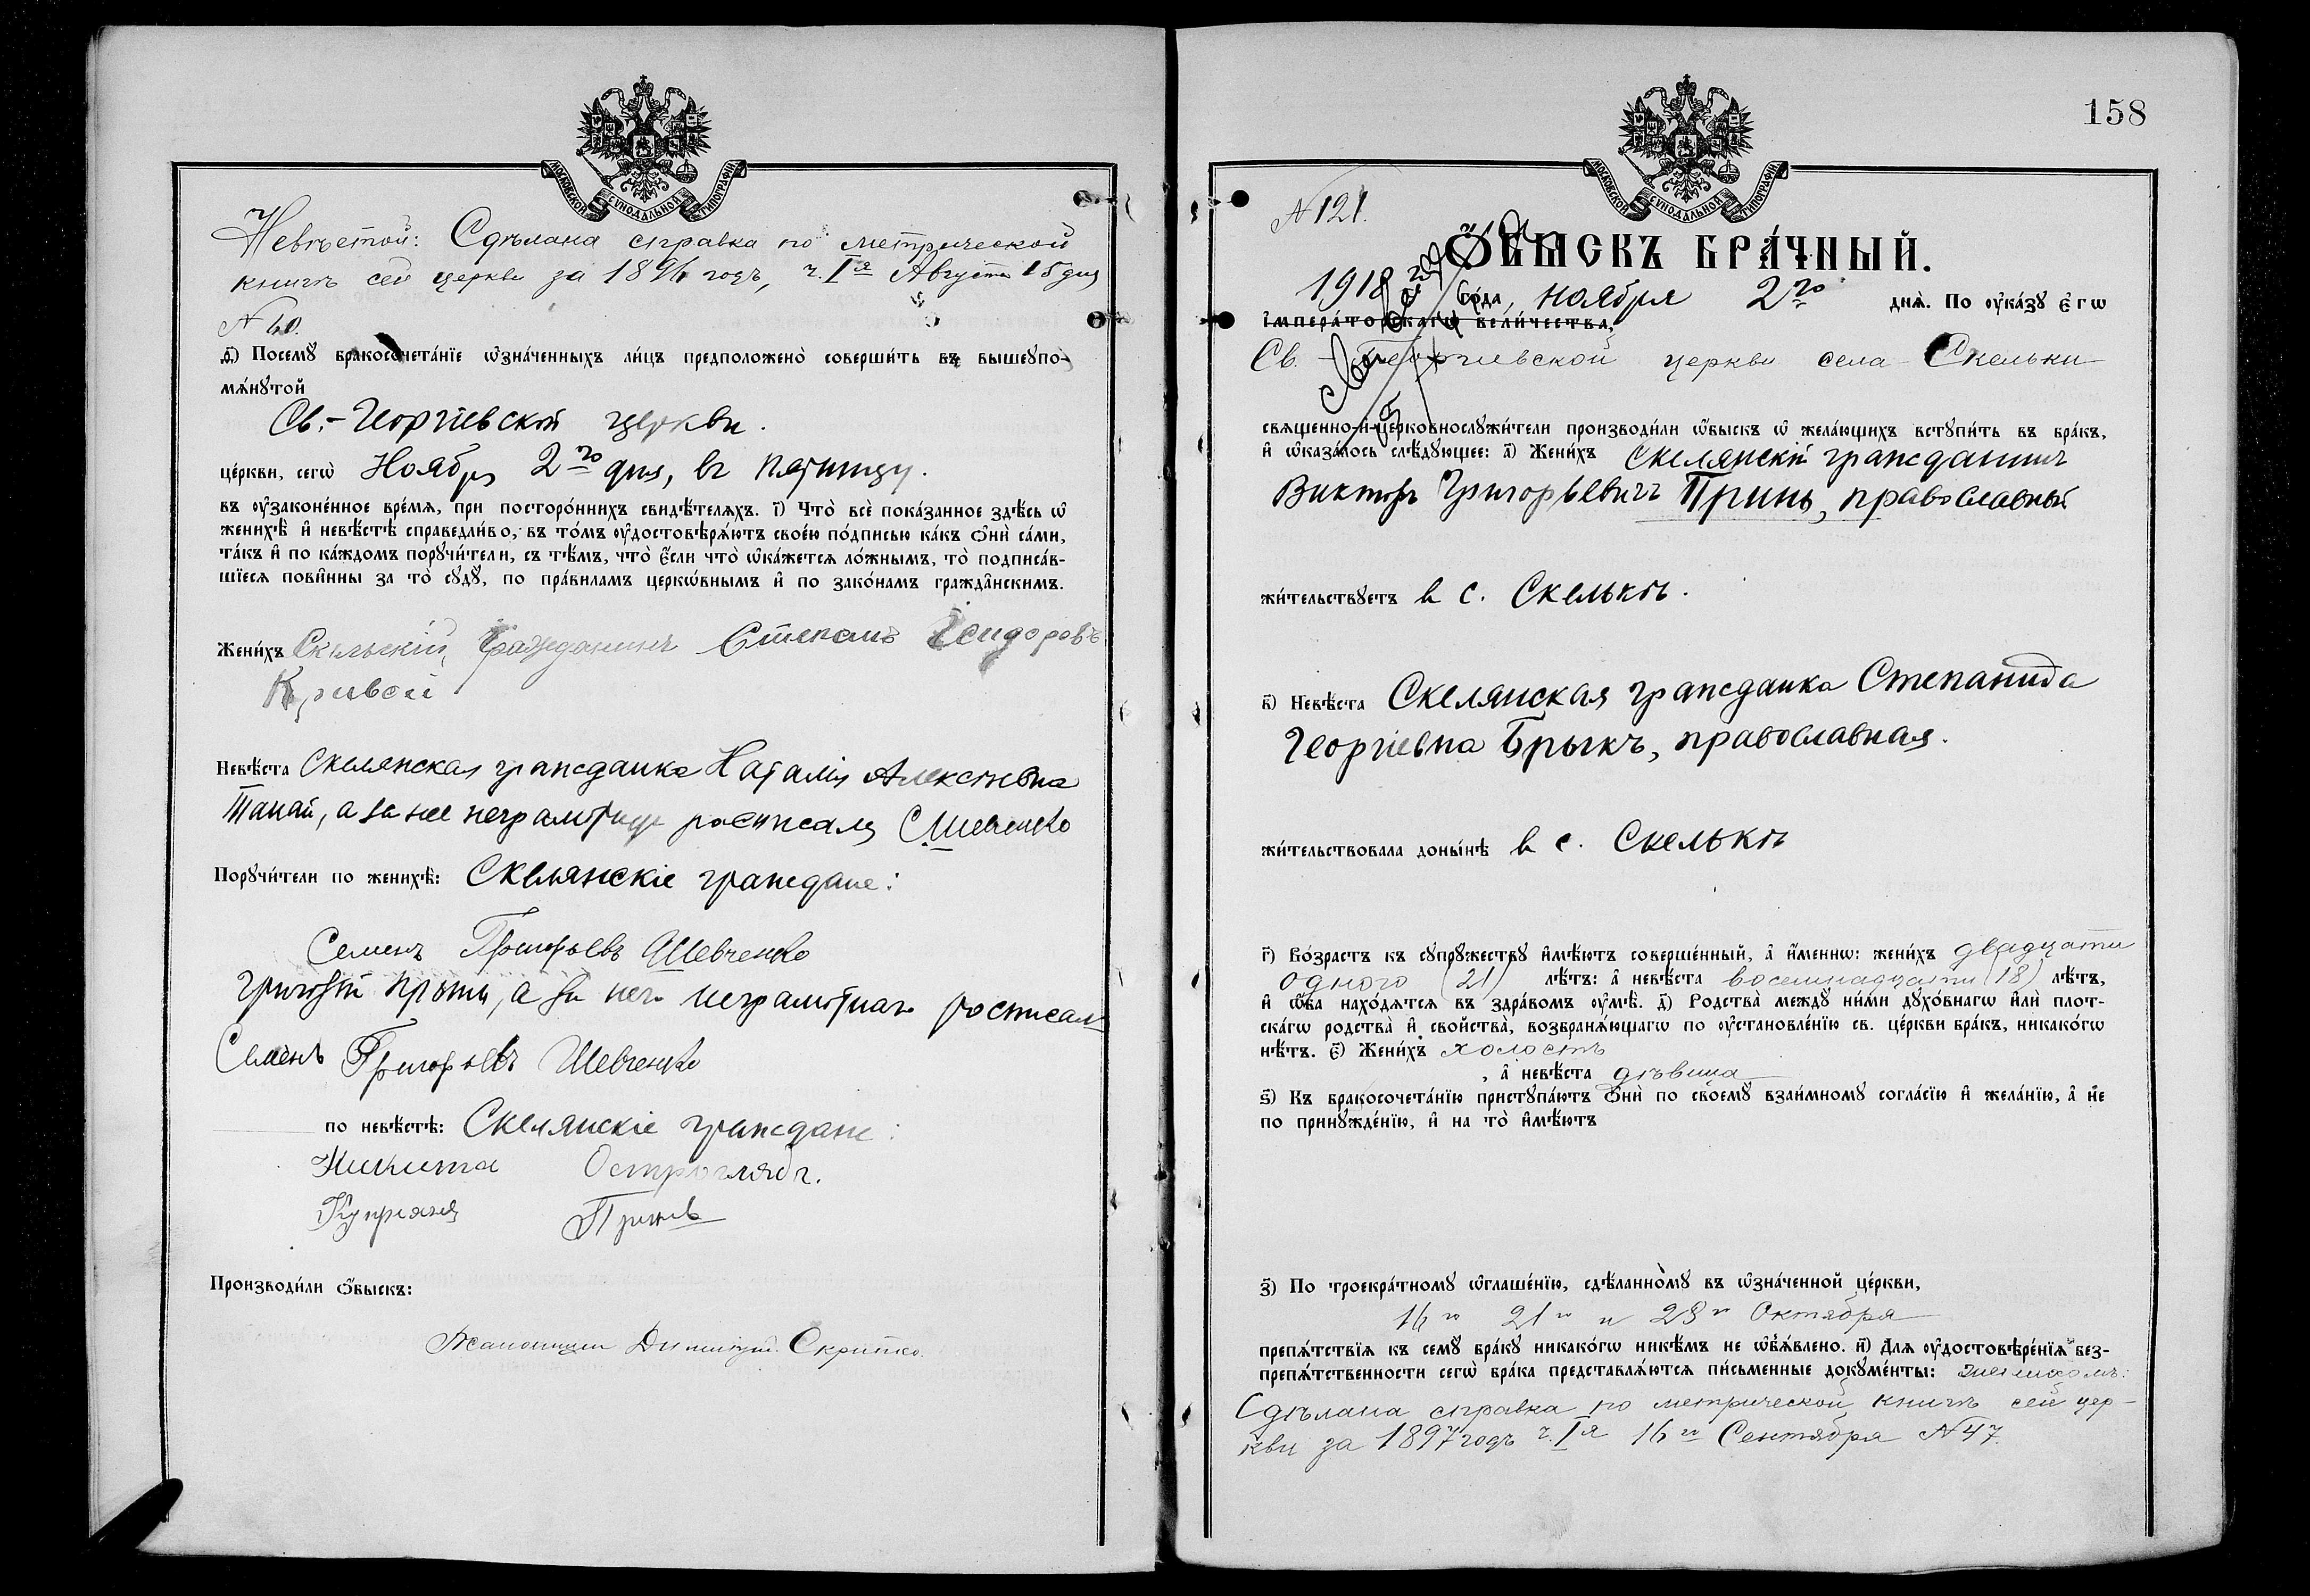 МОСКОВСКОЙ СУНОДАЛЬНОЙ ТИПОГРАФІИ
Невѣстой: Сдѣлана справка по метрической
книгѣ сей церкви за 1896 годъ, ч. Iя Августа 15 дня
N 40.
д҃) Посемꙋ бракосочета́нїе ѡ҆зна́ченныхъ ли́цъ предположено̀ соверши́ть въ вышеꙋпо-
мѧ́нꙋтой
Св.-Георгіевской церкви.
це́ркви, сегѡ̀ Ноября 2го дня, въ пятницу.
въ ᲂу҆законе́нное вре́мѧ, при посторо́ннихъ свидѣ́телѧхъ. і҃) Что̀ всѐ пока́занное здѣ́сь ѡ҆
женихѣ̀ и҆ невѣ́стѣ справедли́во, въ то́мъ ᲂу҆достовѣрѧ́ютъ свое́ю по́дписью ка́къ ѻ҆нѝ са́ми,
та́къ и҆ по ка́ждомъ порꙋчи́тели, съ тѣ́мъ, что̀ є҆́сли что̀ ѡ҆ка́жетсѧ ло́жнымъ, то̀ подписа́в-
шїесѧ пови́нны за то̀ сꙋдꙋ̀, по пра́виламъ церкѡ́внымъ и҆ по зако́намъ гражда́нскимъ.
Жени́хъ Скельскій гражданинъ Степанъ Исидоровъ
Кривой
Невѣ́ста Скелянская гражданка Наталія Алексѣевна
Танай, а за нее неграмотную росписался С. Шевченко
Порꙋчи́тели по женихѣ̀: Скелянскіе граждане:
Семенъ Григорьевъ Шевченко
Григорій Прынь, а за него неграмотнаго росписался
Семенъ Григорьевъ Шевченко
по невѣ́стѣ: Скелянскіе граждане:
Никита Остроглядъ.
Купріянъ Принь
Производи́ли ѻ҆́быскъ:
Димитрій Скрипка.
158
МОСКОВСКОЙ СУНОДАЛЬНОЙ ТИПОГРАФІИ
N 121.
Ѻ҆́БЫСКЪ БРА́ЧНЫЙ.
1918 го́да, ноября 2го днѧ̀. По ᲂу҆ка́зꙋ є҆гѡ̀
і҆мпера́торскагѡ вели́чества,
Св.-Георгіевской церкви села Скельки
свѧщенно-и҆-церковнослꙋжи́тели производи́ли ѡ҆́быскъ ѡ҆ жела́ющихъ встꙋпи́ть въ бра́къ,
и҆ ѡ҆каза́лось слѣ́дꙋющее: а҃) Жени́хъ Скелянскій гражданинъ
Викторъ Григорьевичъ Принь, православный
жи́тельствꙋетъ въ с. Скелькѣ.
в҃) Невѣ́ста Скелянская гражданка Степанида
Георгіевна Брыкъ, православная.
жи́тельствовала доны́нѣ въ с. Скелькѣ
г҃) Во́зрастъ къ сꙋпрꙋ́жествꙋ и҆мѣ́ютъ соверше́нный, а҆ и҆́менно: жени́хъ двадцати
одного (21) лѣ́тъ: а҆ невѣ́ста восемнадцати (18) лѣ́тъ,
и҆ ѻ҆́ба нахо́дѧтсѧ въ здра́вомъ ᲂу҆мѣ̀. д҃) Родства̀ междꙋ̀ ни́ми дꙋхо́внагѡ и҆лѝ плот-
ска́гѡ родства̀ и҆ свойства̀, возбранѧ́ющагѡ по ᲂу҆становле́нїю св. це́ркви бра́къ, никако́гѡ
нѣ́тъ. є҃) Жени́хъ холостъ
, а҆ невѣ́ста дѣвица
ѕ҃) Къ бракосочета́нїю пристꙋпа́ютъ ѻ҆нѝ по своемꙋ̀ взаи́мномꙋ согла́сїю и҆ жела́нїю, а҆ не
по принꙋжде́нїю, и҆ на то̀ и҆мѣ́ютъ
з҃) По троекра́тномꙋ ѡ҆глаше́нїю, сдѣ́ланномꙋ въ ѡ҆зна́ченной це́ркви,
16го 21го и 28го Октября
препѧ́тствїѧ къ семꙋ̀ бра́кꙋ никако́гѡ никѣ́мъ не ѡ҆б̾ѧ́влено. и҃) Длѧ ᲂу҆достовѣре́нїѧ без-
препѧ́тственности сегѡ̀ бра́ка представлѧ́ютсѧ пи́сьменные докꙋме́нты: женихомъ:
Сдѣлана справка по метрической книгѣ сей цер-
кви за 1897 годъ ч. Iя 16го Сентября N 47.